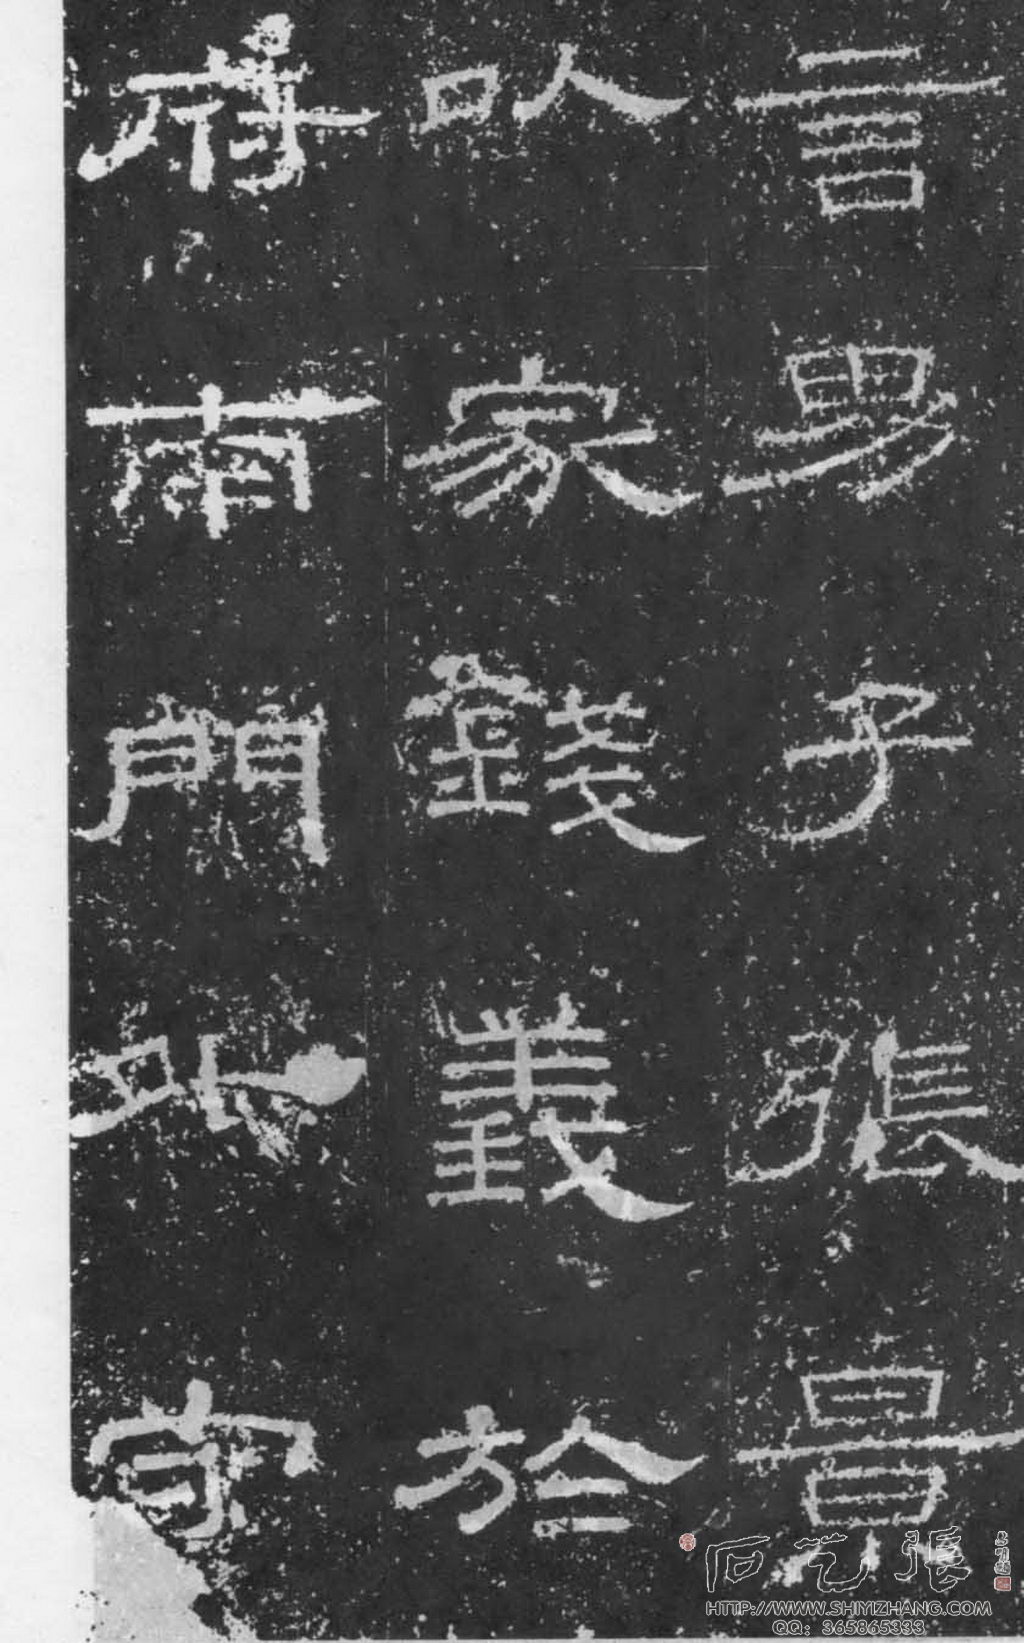 言男子張景
以家錢義於
府南門外守
石艺張
HTTP://WWW.SHIYIZHANG.COM
QQ: 365865333